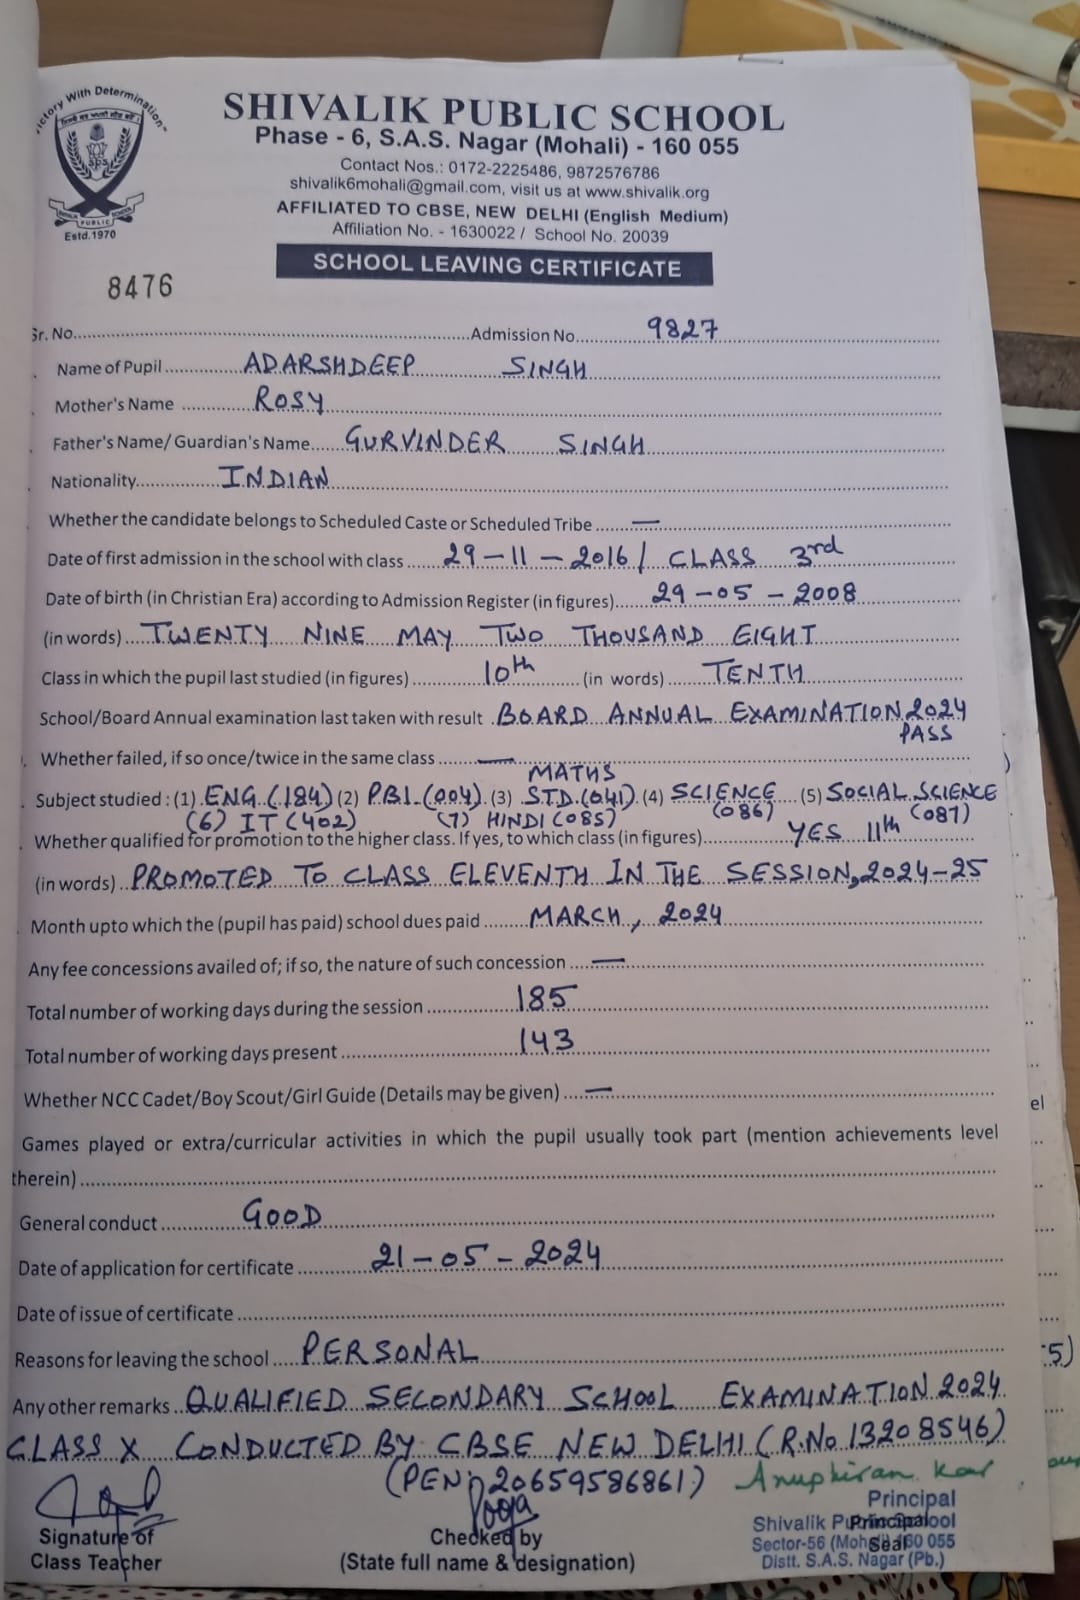 "Victory With Determination"
SPS
SHIVALIK PUBLIC SCHOOL
Estd.1970
SHIVALIK PUBLIC SCHOOL
Phase - 6, S.A.S. Nagar (Mohali) - 160 055
Contact Nos.: 0172-2225486, 9872576786
shivalik6mohali@gmail.com, visit us at www.shivalik.org
AFFILIATED TO CBSE, NEW DELHI (English Medium)
Affiliation No. - 1630022 / School No. 20039
SCHOOL LEAVING CERTIFICATE
8476
Sr. No. Admission No. 9827
Name of Pupil ADARSHDEEP SINGH
Mother's Name ROSY
Father's Name/ Guardian's Name GURVINDER SINGH
Nationality INDIAN
Whether the candidate belongs to Scheduled Caste or Scheduled Tribe —
Date of first admission in the school with class 29-11-2016/ CLASS 3rd
Date of birth (in Christian Era) according to Admission Register (in figures) 29-05-2008
(in words) TWENTY NINE MAY TWO THOUSAND EIGHT
Class in which the pupil last studied (in figures) 10th (in words) TENTH
School/Board Annual examination last taken with result BOARD ANNUAL EXAMINATION 2024
PASS
Whether failed, if so once/twice in the same class —
MATHS
Subject studied : (1) ENG.(184) (2) PBI.(004) (3) STD.(041) (4) SCIENCE (5) SOCIAL SCIENCE
(6) IT (402) (7) HINDI (085) (086) (087)
Whether qualified for promotion to the higher class. If yes, to which class (in figures) YES 11th
(in words) PROMOTED TO CLASS ELEVENTH IN THE SESSION, 2024-25
Month upto which the (pupil has paid) school dues paid MARCH, 2024
Any fee concessions availed of; if so, the nature of such concession —
Total number of working days during the session 185
Total number of working days present 143
Whether NCC Cadet/Boy Scout/Girl Guide (Details may be given) —
Games played or extra/curricular activities in which the pupil usually took part (mention achievements level
therein)
General conduct GOOD
Date of application for certificate 21-05-2024
Date of issue of certificate
Reasons for leaving the school PERSONAL
Any other remarks QUALIFIED SECONDARY SCHOOL EXAMINATION 2024
CLASS X CONDUCTED BY CBSE NEW DELHI (R.No 13208546)
(PEN:20659586861) Anupkiran Kar
Pooja
Principal
Signature of Checked by Shivalik Public School Principal
Class Teacher (State full name & designation) Sector-56 (Mohali) 160 055 Seal
Distt. S.A.S. Nagar (Pb.)
el
5)